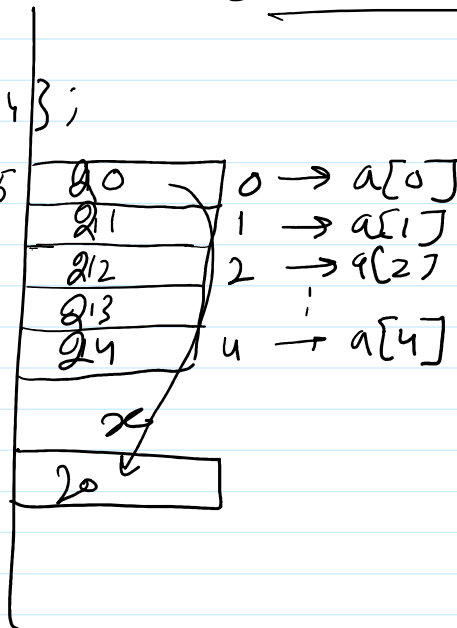 4};
5 20 0 → a[0]
21 1 → a[1]
22 2 → a[2]
23 ⋮
24 4 → a[4]
x
20